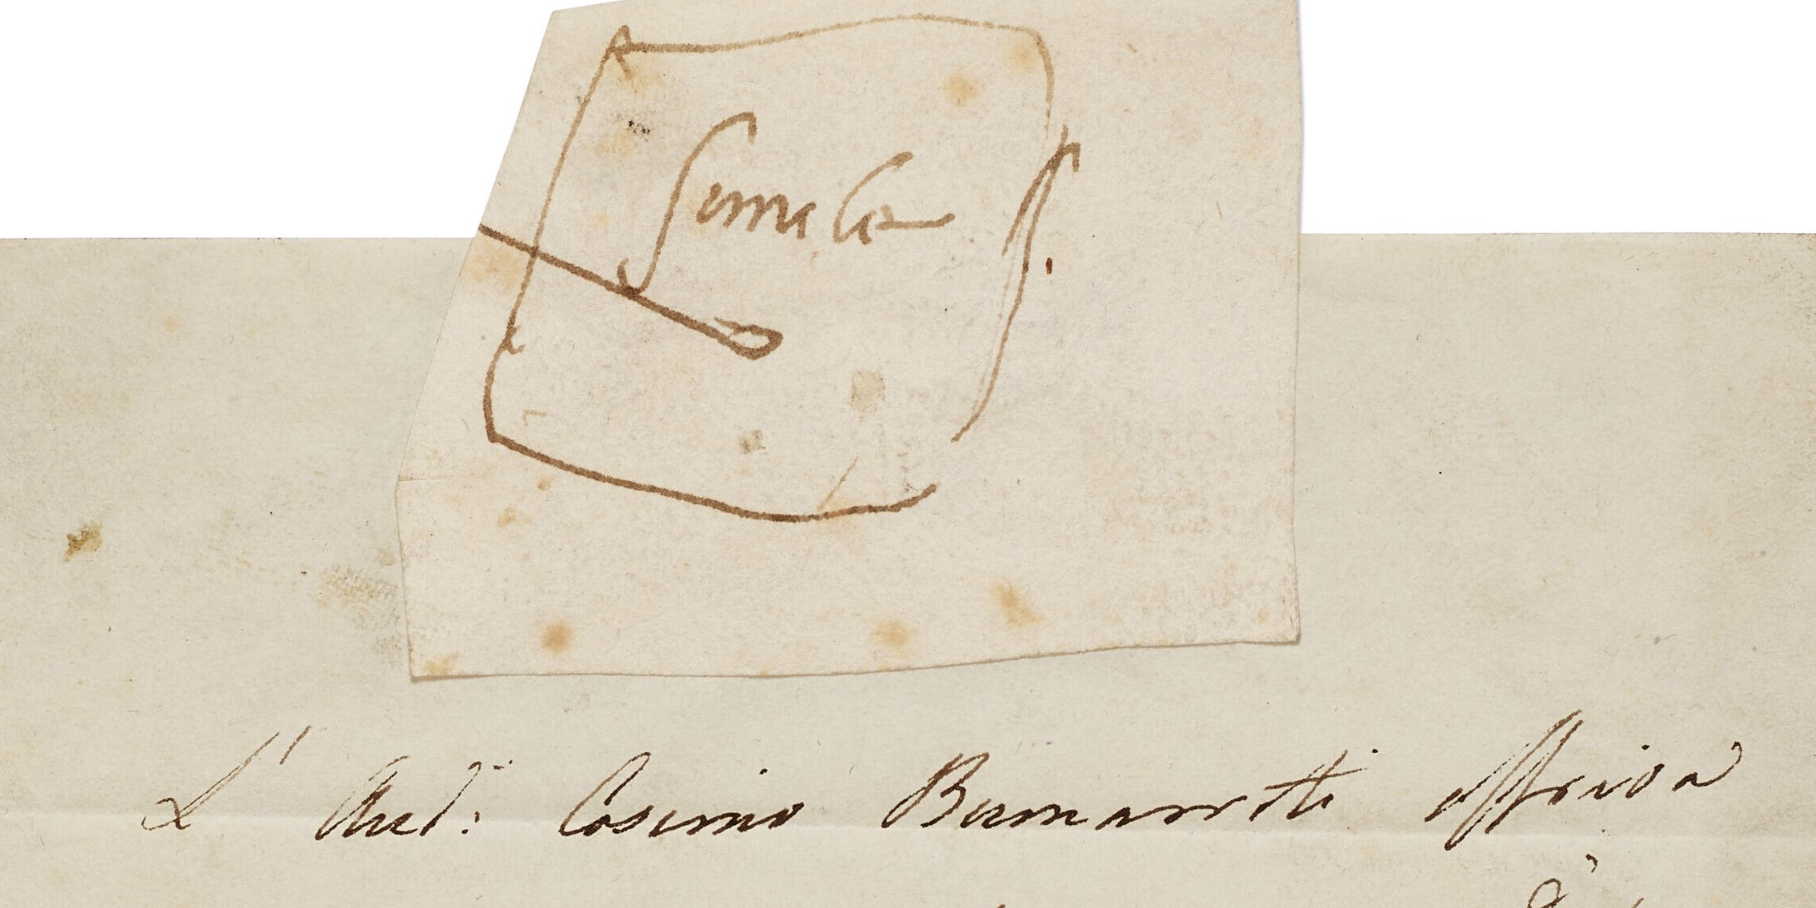 simile
L' Aud.: Cosimo Buonarroti offriva